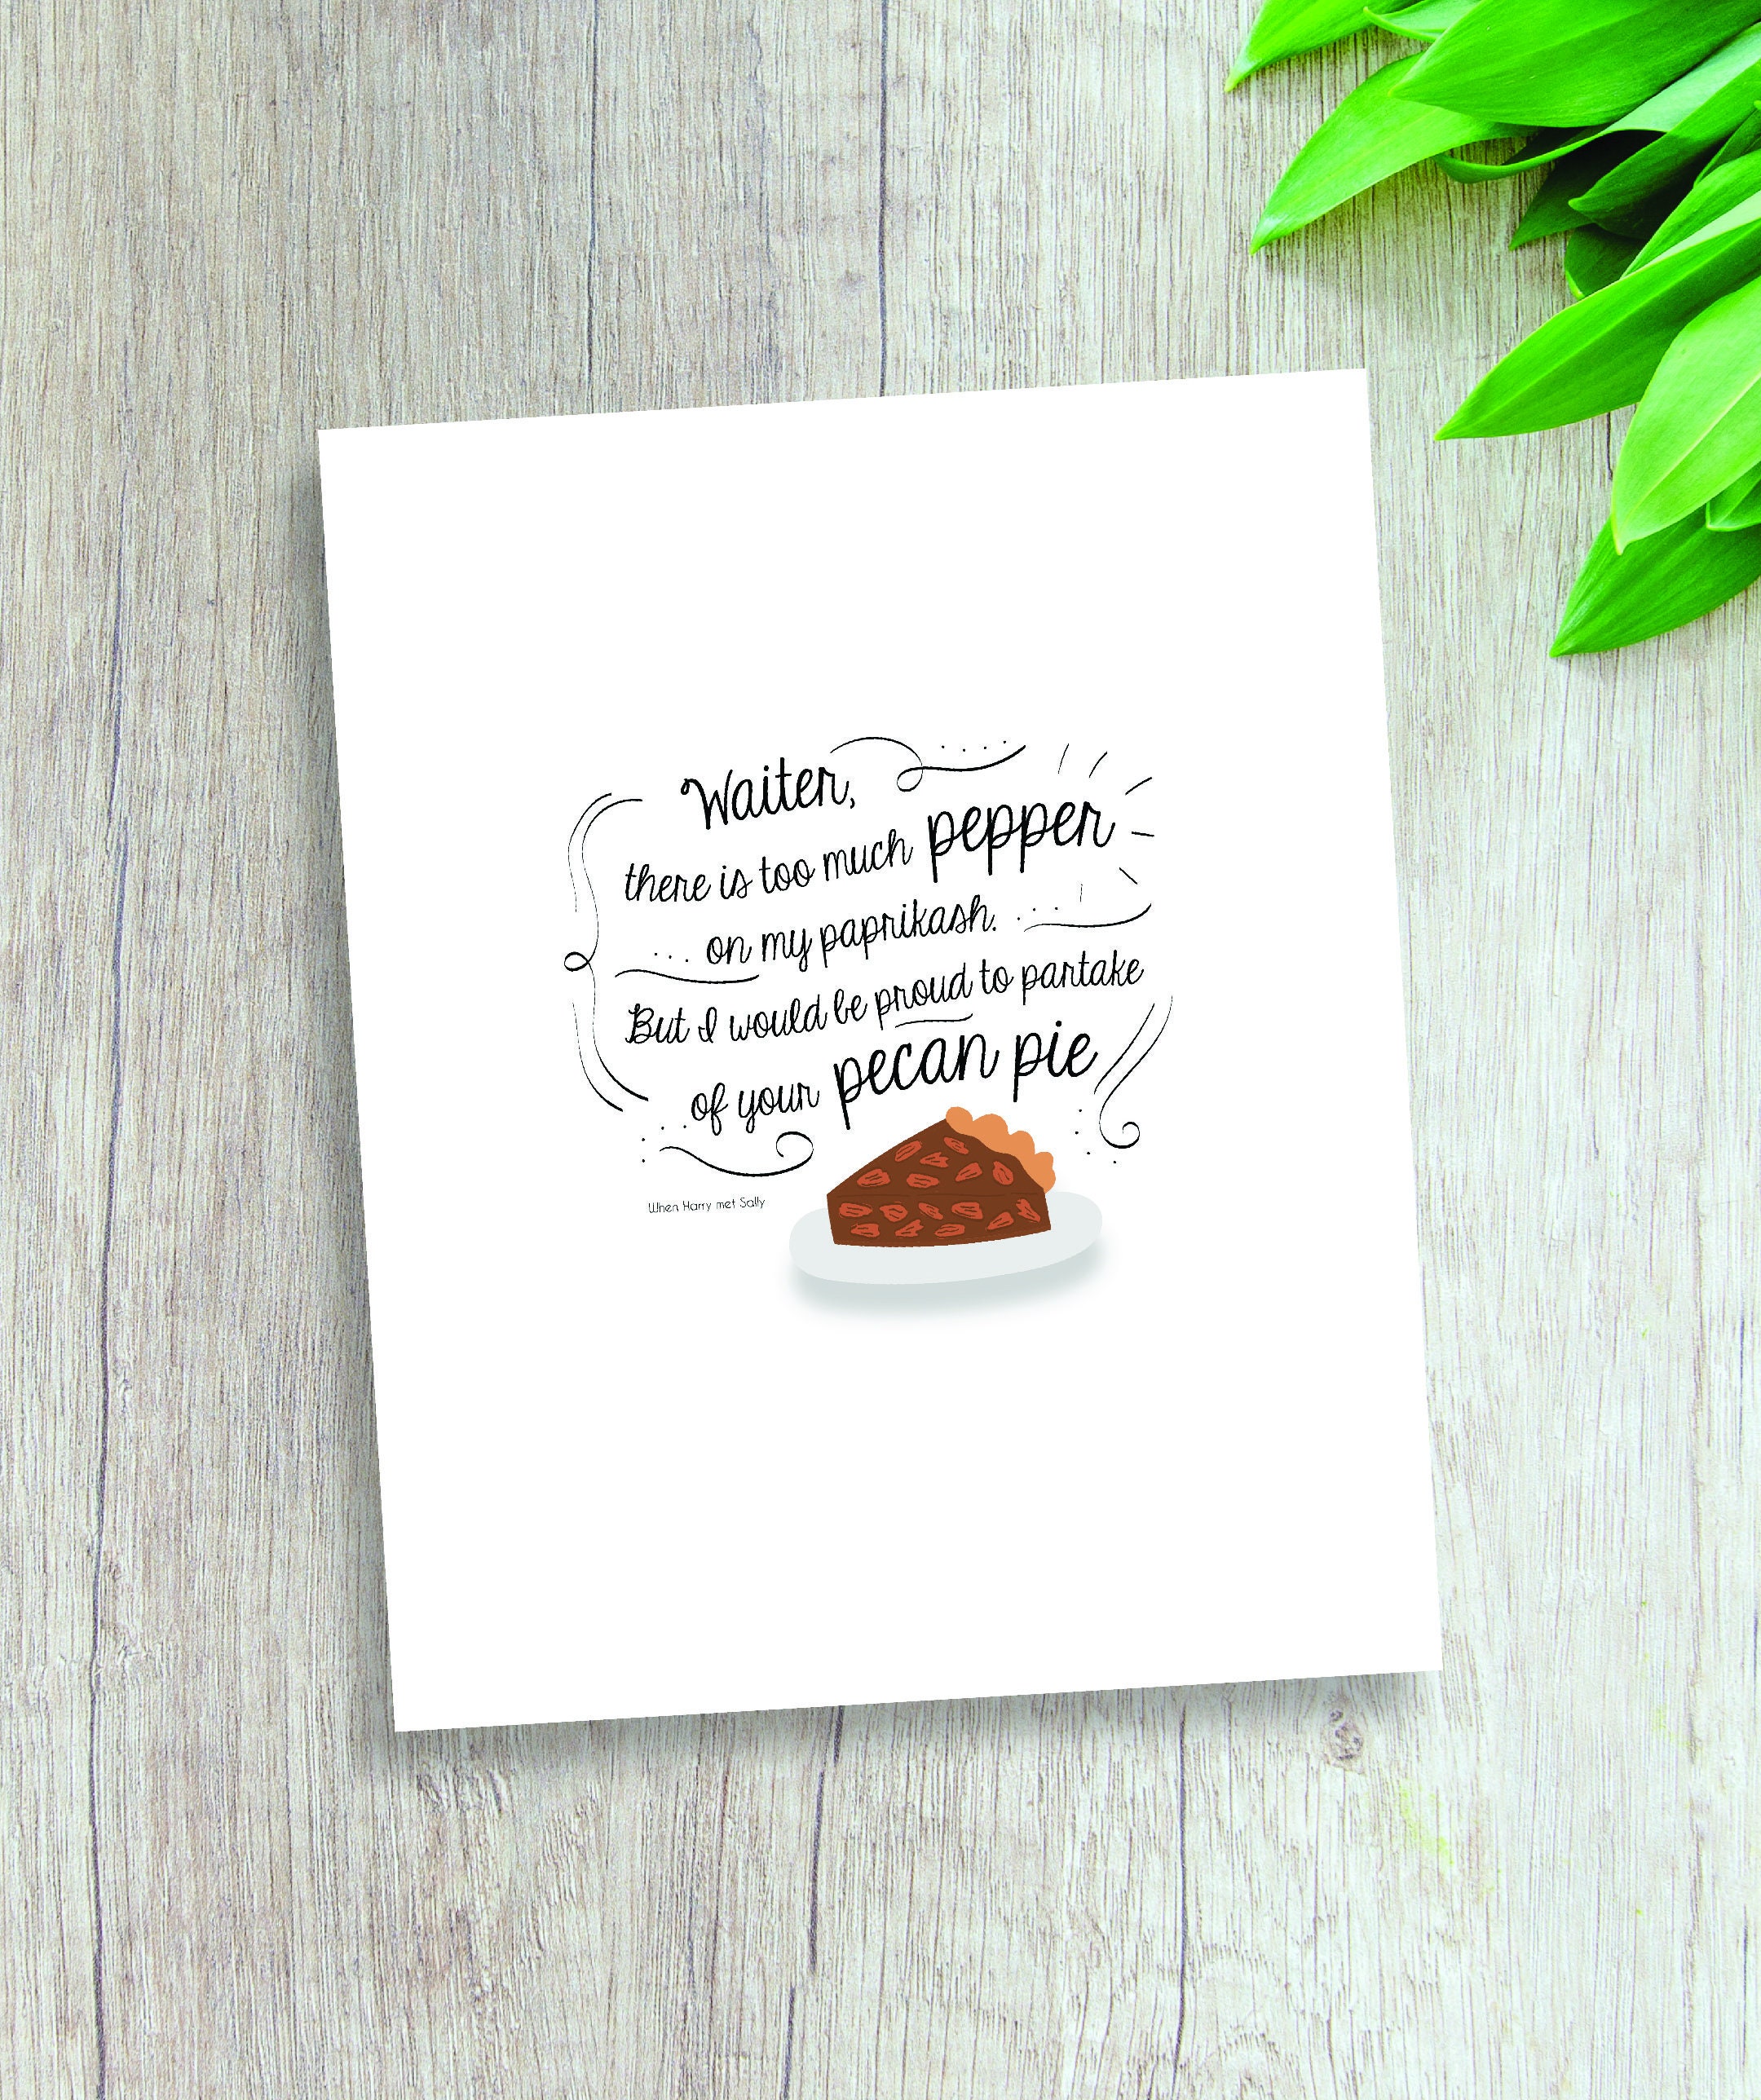 Waiter,
there is too much pepper
on my paprikash.
But I would be proud to partake
of your pecan pie
When Harry met Sally